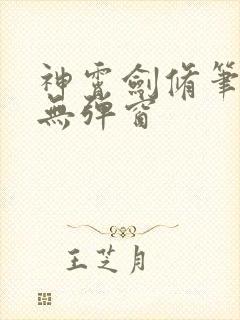 神霄劍脩筆
無彈窗
王芝月